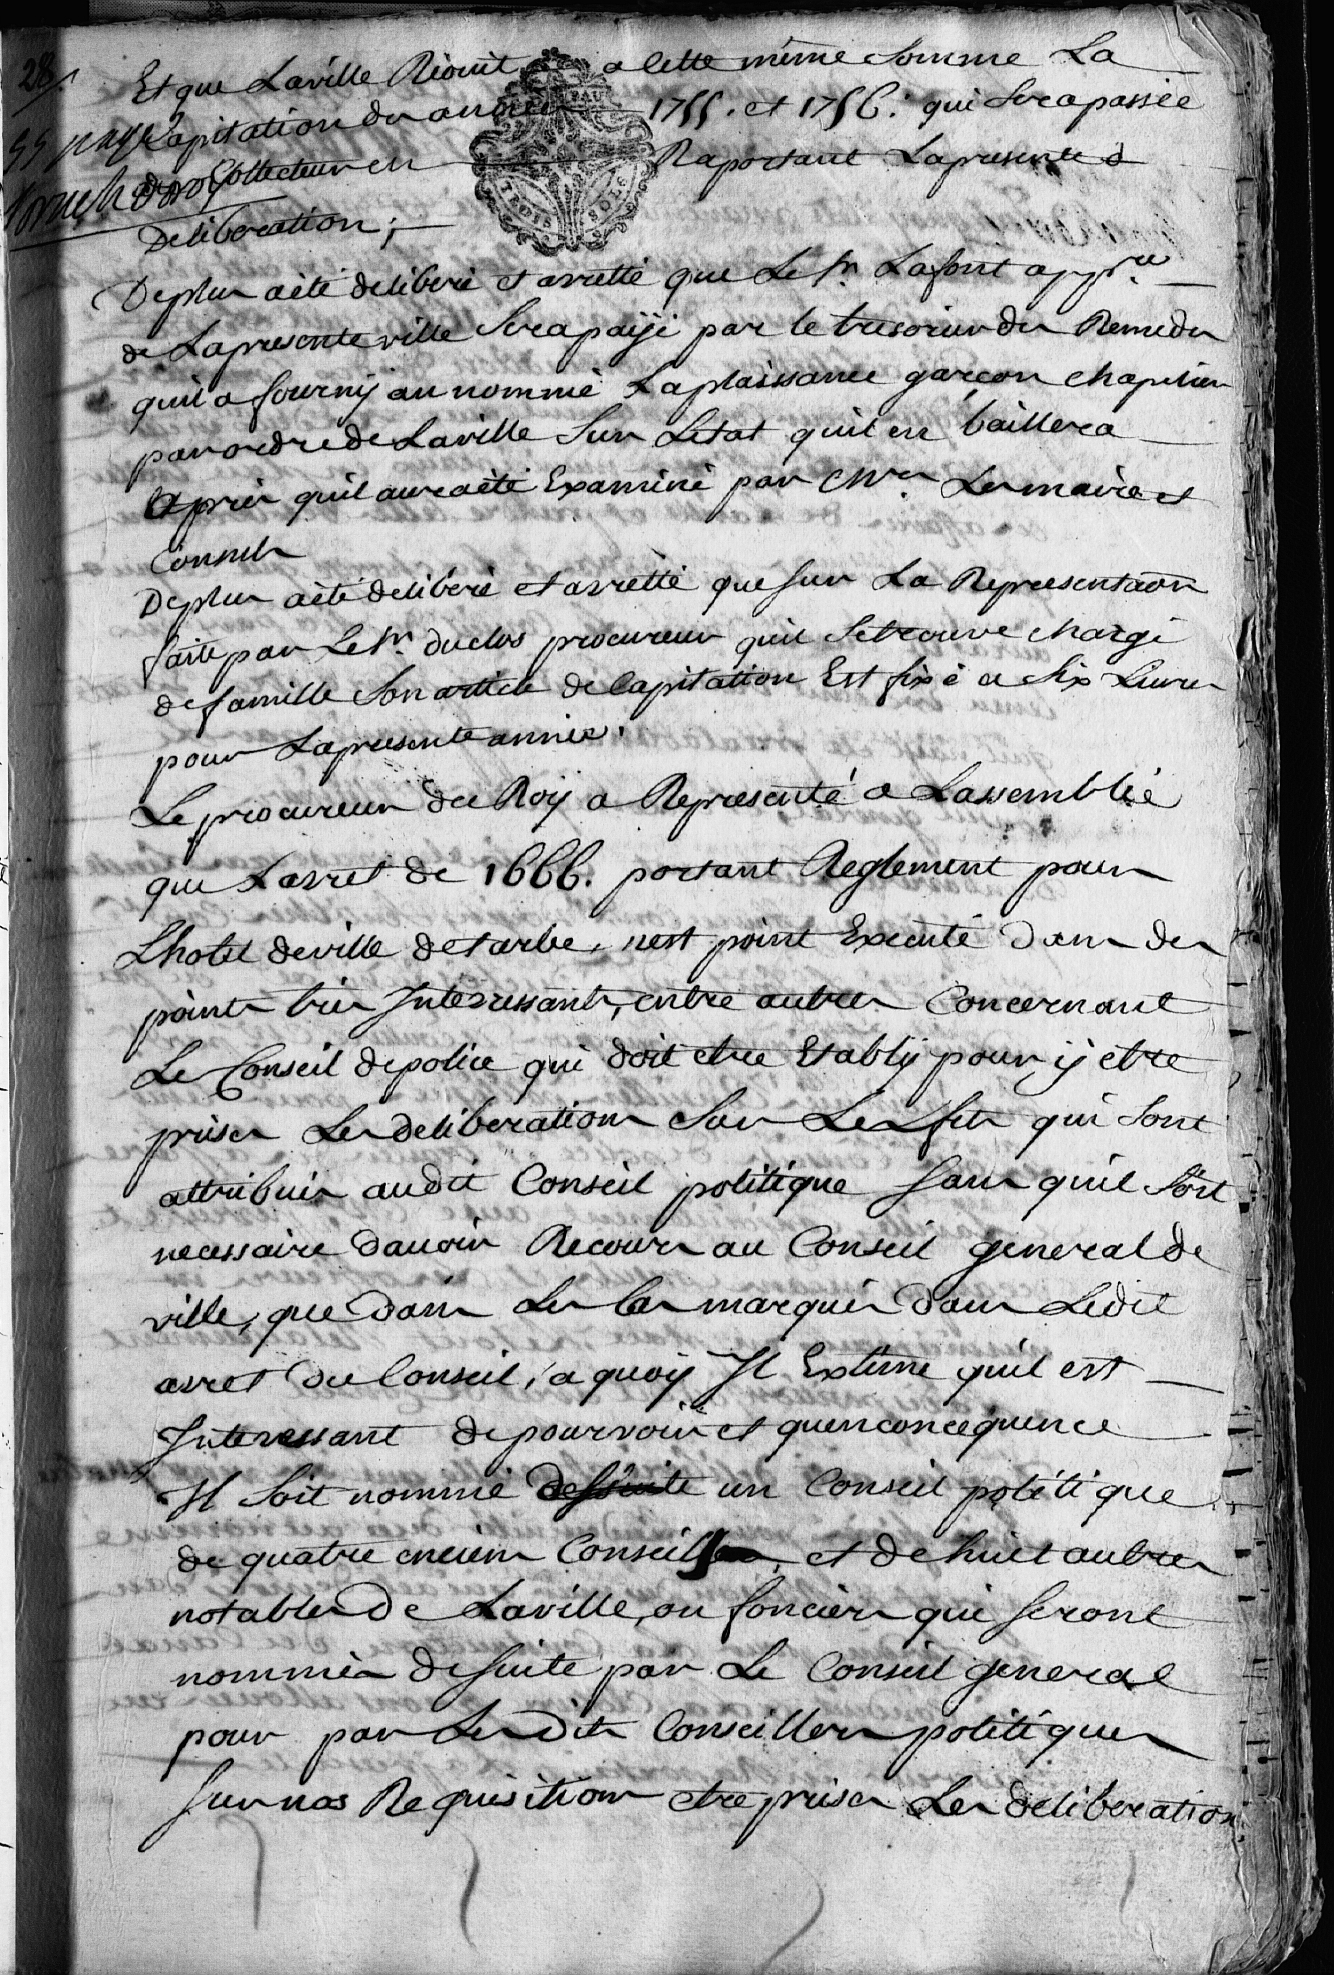 28.
55 page
Et que Laville Réduit a Cette même Somme La
Capitation des années 1755. et 1756. qui Sera passée
aux Collecteurs en Raportant La presente
Deliberation ;
TROIS SOLS
De plus a été deliberé et arretté que Le Sr. Lafont appre
de La presente ville Sera paÿé par le tresorier des Remedes
quil a fournÿ au nommé Laplaissance garçon chapelier
par ordre de Laville Sur Letat quil en baillera
apres quil aura été Examiné par Mrs. Les maire et
Consuls
De plus a été deliberé et arretté que sur La Representaon
faite par Le Sr. duclos procureur quil Se trouve chargé
de famille Son article de Capitation Est fixé a Six Livres
pour La presente année.
Le procureur du Roÿ a Representé a Lassemblée
que Larret de 1666. portant Reglement pour
Lhotel de ville de tarbe, nest point Executé dans des
points tres Interessants, entre autres Concernant
Le Conseil de police qui doit etre Etablÿ pour ÿ etre
prises Les deliberations Sur Les faits qui Sont
attribués audit Conseil politique Sans quil Soit
necessaire davoir Recours au Conseil general de
ville, que dans Les Cas marqués dans Ledit
arret du Conseil, a quoÿ Il Extime quil est
Interessant de pourvoir et quen concequence
Il Soit nommé de suite un Conseil politique
de quatre anciens Conseils, et de huit autres
notables de Laville ou fonciers qui seront
nommés de suite par Le Conseil general
pour par Les dits Conseillers politiques
sur nos Requisitions etre prises Les deliberations